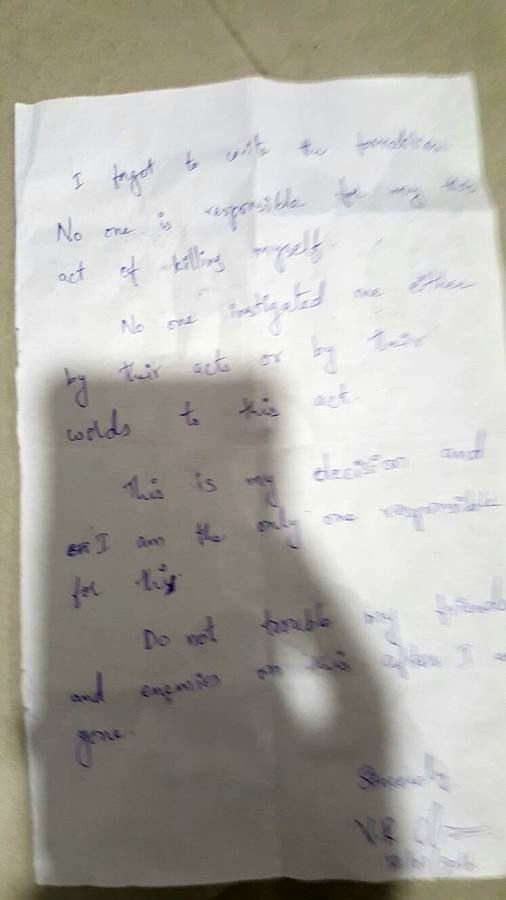 I forgot to write the formalities
No one is responsible for my this
act of killing myself.
No one instigated me either
by their acts or by their
words to this act.
This is my decision and
I am the only one responsible
for this
Do not trouble my friends
and enemies on this after I
gone.
Sincerely
V.R.